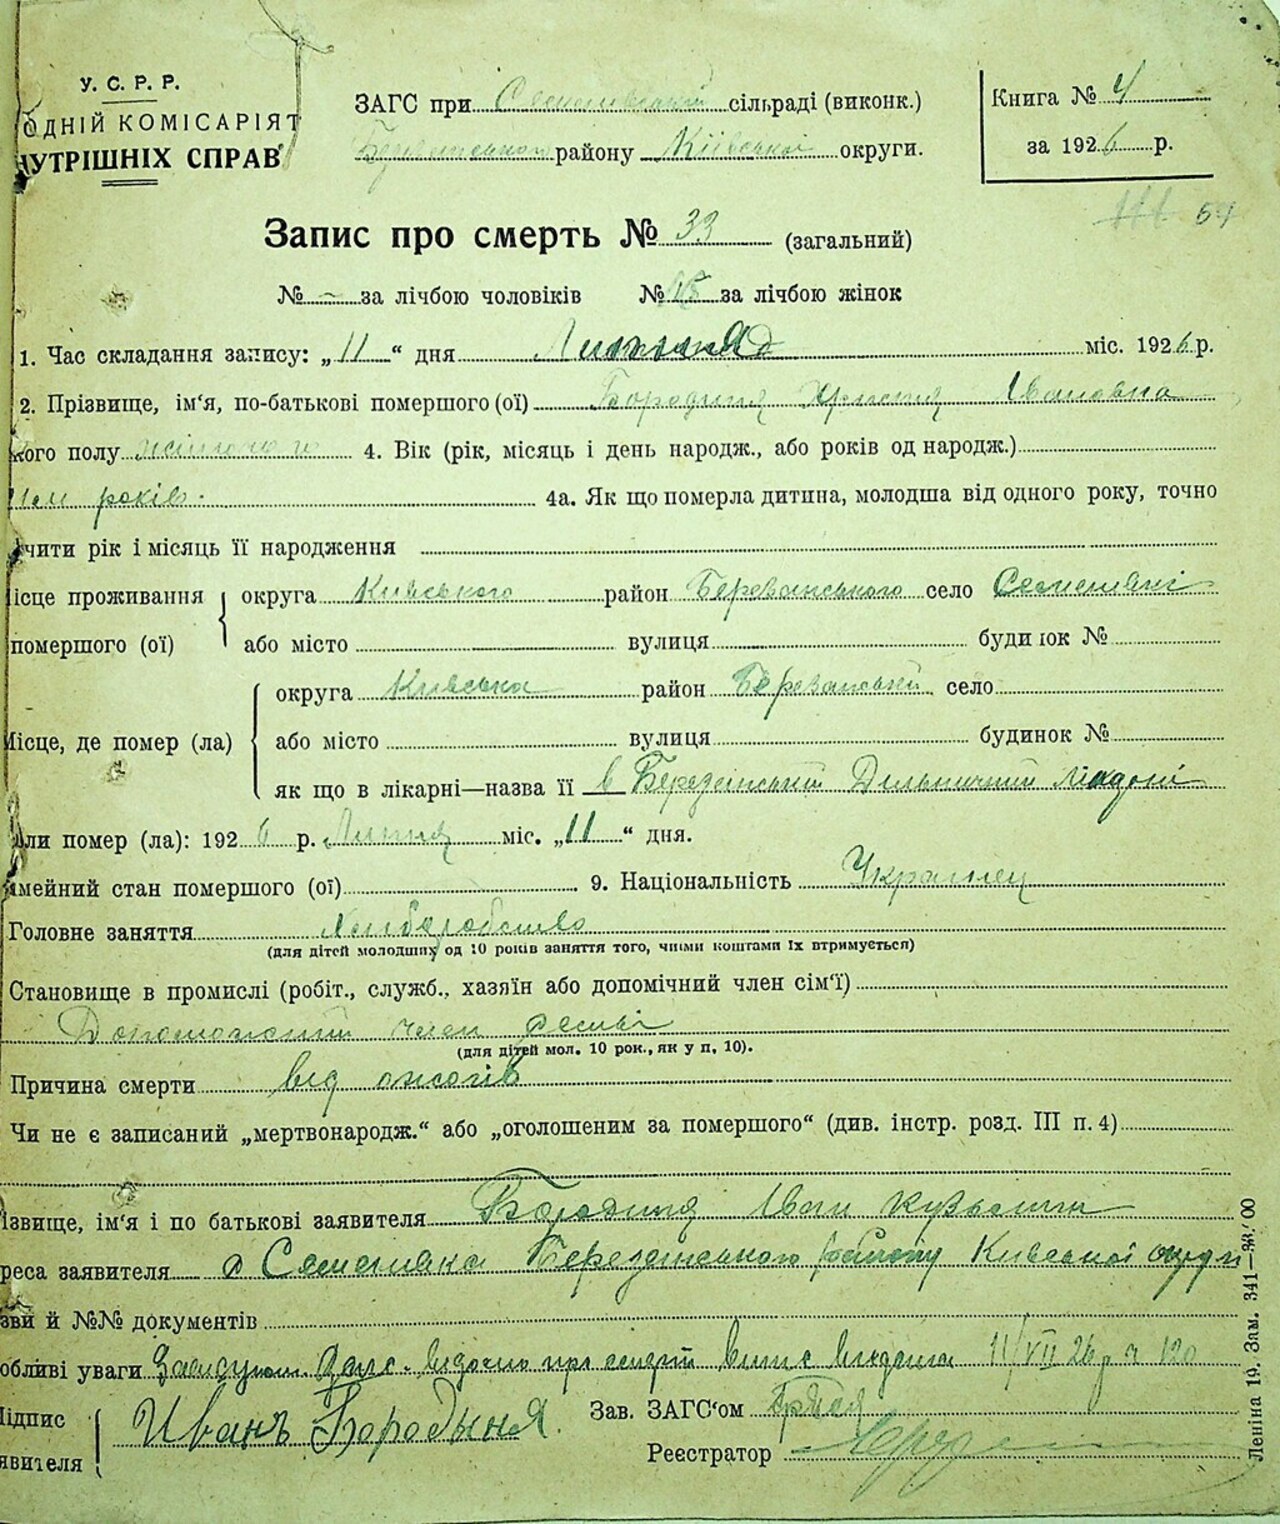 У. С. Р. Р.
ОДНІЙ КОМІСАРІЯТ
НУТРІШНІХ СПРАВ
ЗАГС при сільраді (виконк.)
району Київської округи.
Книга № 4
за 1926 р.
54
Запис про смерть № 33 (загальний)
№ - за лічбою чоловіків № 15 за лічбою жінок
1. Час складання запису: „11“ дня міс. 1926 р.
2. Прізвище, ім‘я, по-батькові помершого (ої) Бородиня Христия Івановна
кого полу 4. Вік (рік, місяць і день народж., або років од народж.)
років. 4а. Як що померла дитина, молодша від одного року, точно
чити рік і місяць її народження
ісце проживання округа Київського район Березанського село Семенівкі
помершого (ої) або місто вулиця будинок №
округа Київська район Березанський село
Місце, де помер (ла) або місто вулиця будинок №
як що в лікарні—назва її в Березанський Дильничний
ли помер (ла): 1926 р. Липня міс. „11“ дня.
імейний стан помершого (ої) 9. Національність Украінец
Головне заняття Хлиборобство
(для дітей молодших од 10 років заняття того, чиїми коштами їх втримується)
Становище в промислі (робіт., служб., хазяїн або допомічний член сім‘ї)
член семьі
(для дітей мол. 10 рок., як у п, 10).
Причина смерти від ожогів
Чи не є записаний „мертвонародж.“ або „оголошеним за помершого“ (див. інстр. розд. III п. 4)
ізвище, ім‘я і по батькові заявителя Бородиня Іван Кузьмич
реса заявителя с Семенивка Березанського району Киівськоі округи
зви й №№ документів
обливі уваги 11/VII 26 р ч 120
Підпис Иванъ Бородыня. Зав. ЗАГС‘ом
явителя Реєстратор
Леніна 19. Зам. 341—